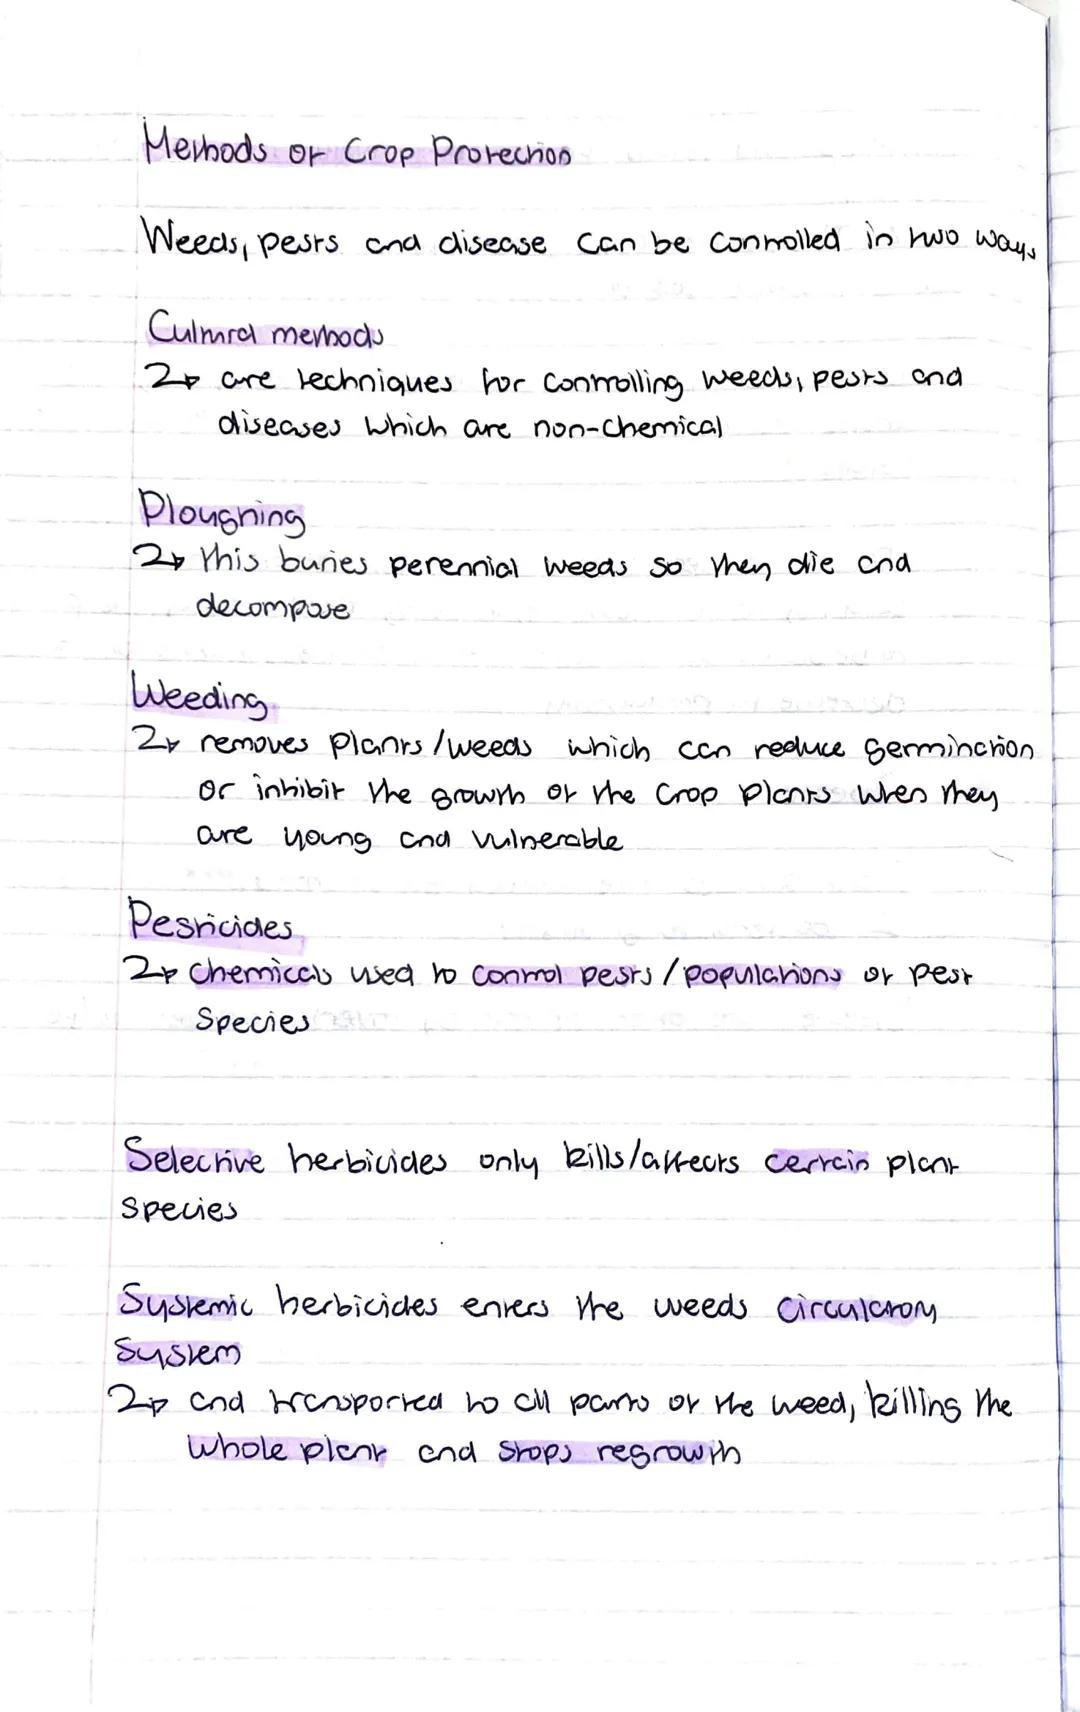 Methods of Crop Protection
Weeds, pests and disease can be controlled in two ways
Cultural methods
↳ are techniques for controlling weeds, pests and
diseases which are non-chemical
Ploughing
↳ this buries perennial weeds so they die and
decompose
Weeding
↳ removes plants/weeds which can reduce germination
or inhibit the growth of the crop plants when they
are young and vulnerable
Pesticides
↳ Chemicals used to control pests/populations of pest
species
Selective herbicides only kills/affects certain plant
species
Systemic herbicides enters the weeds circulatory
system
↳ and transported to all parts of the weed, killing the
whole plant and stops regrowth